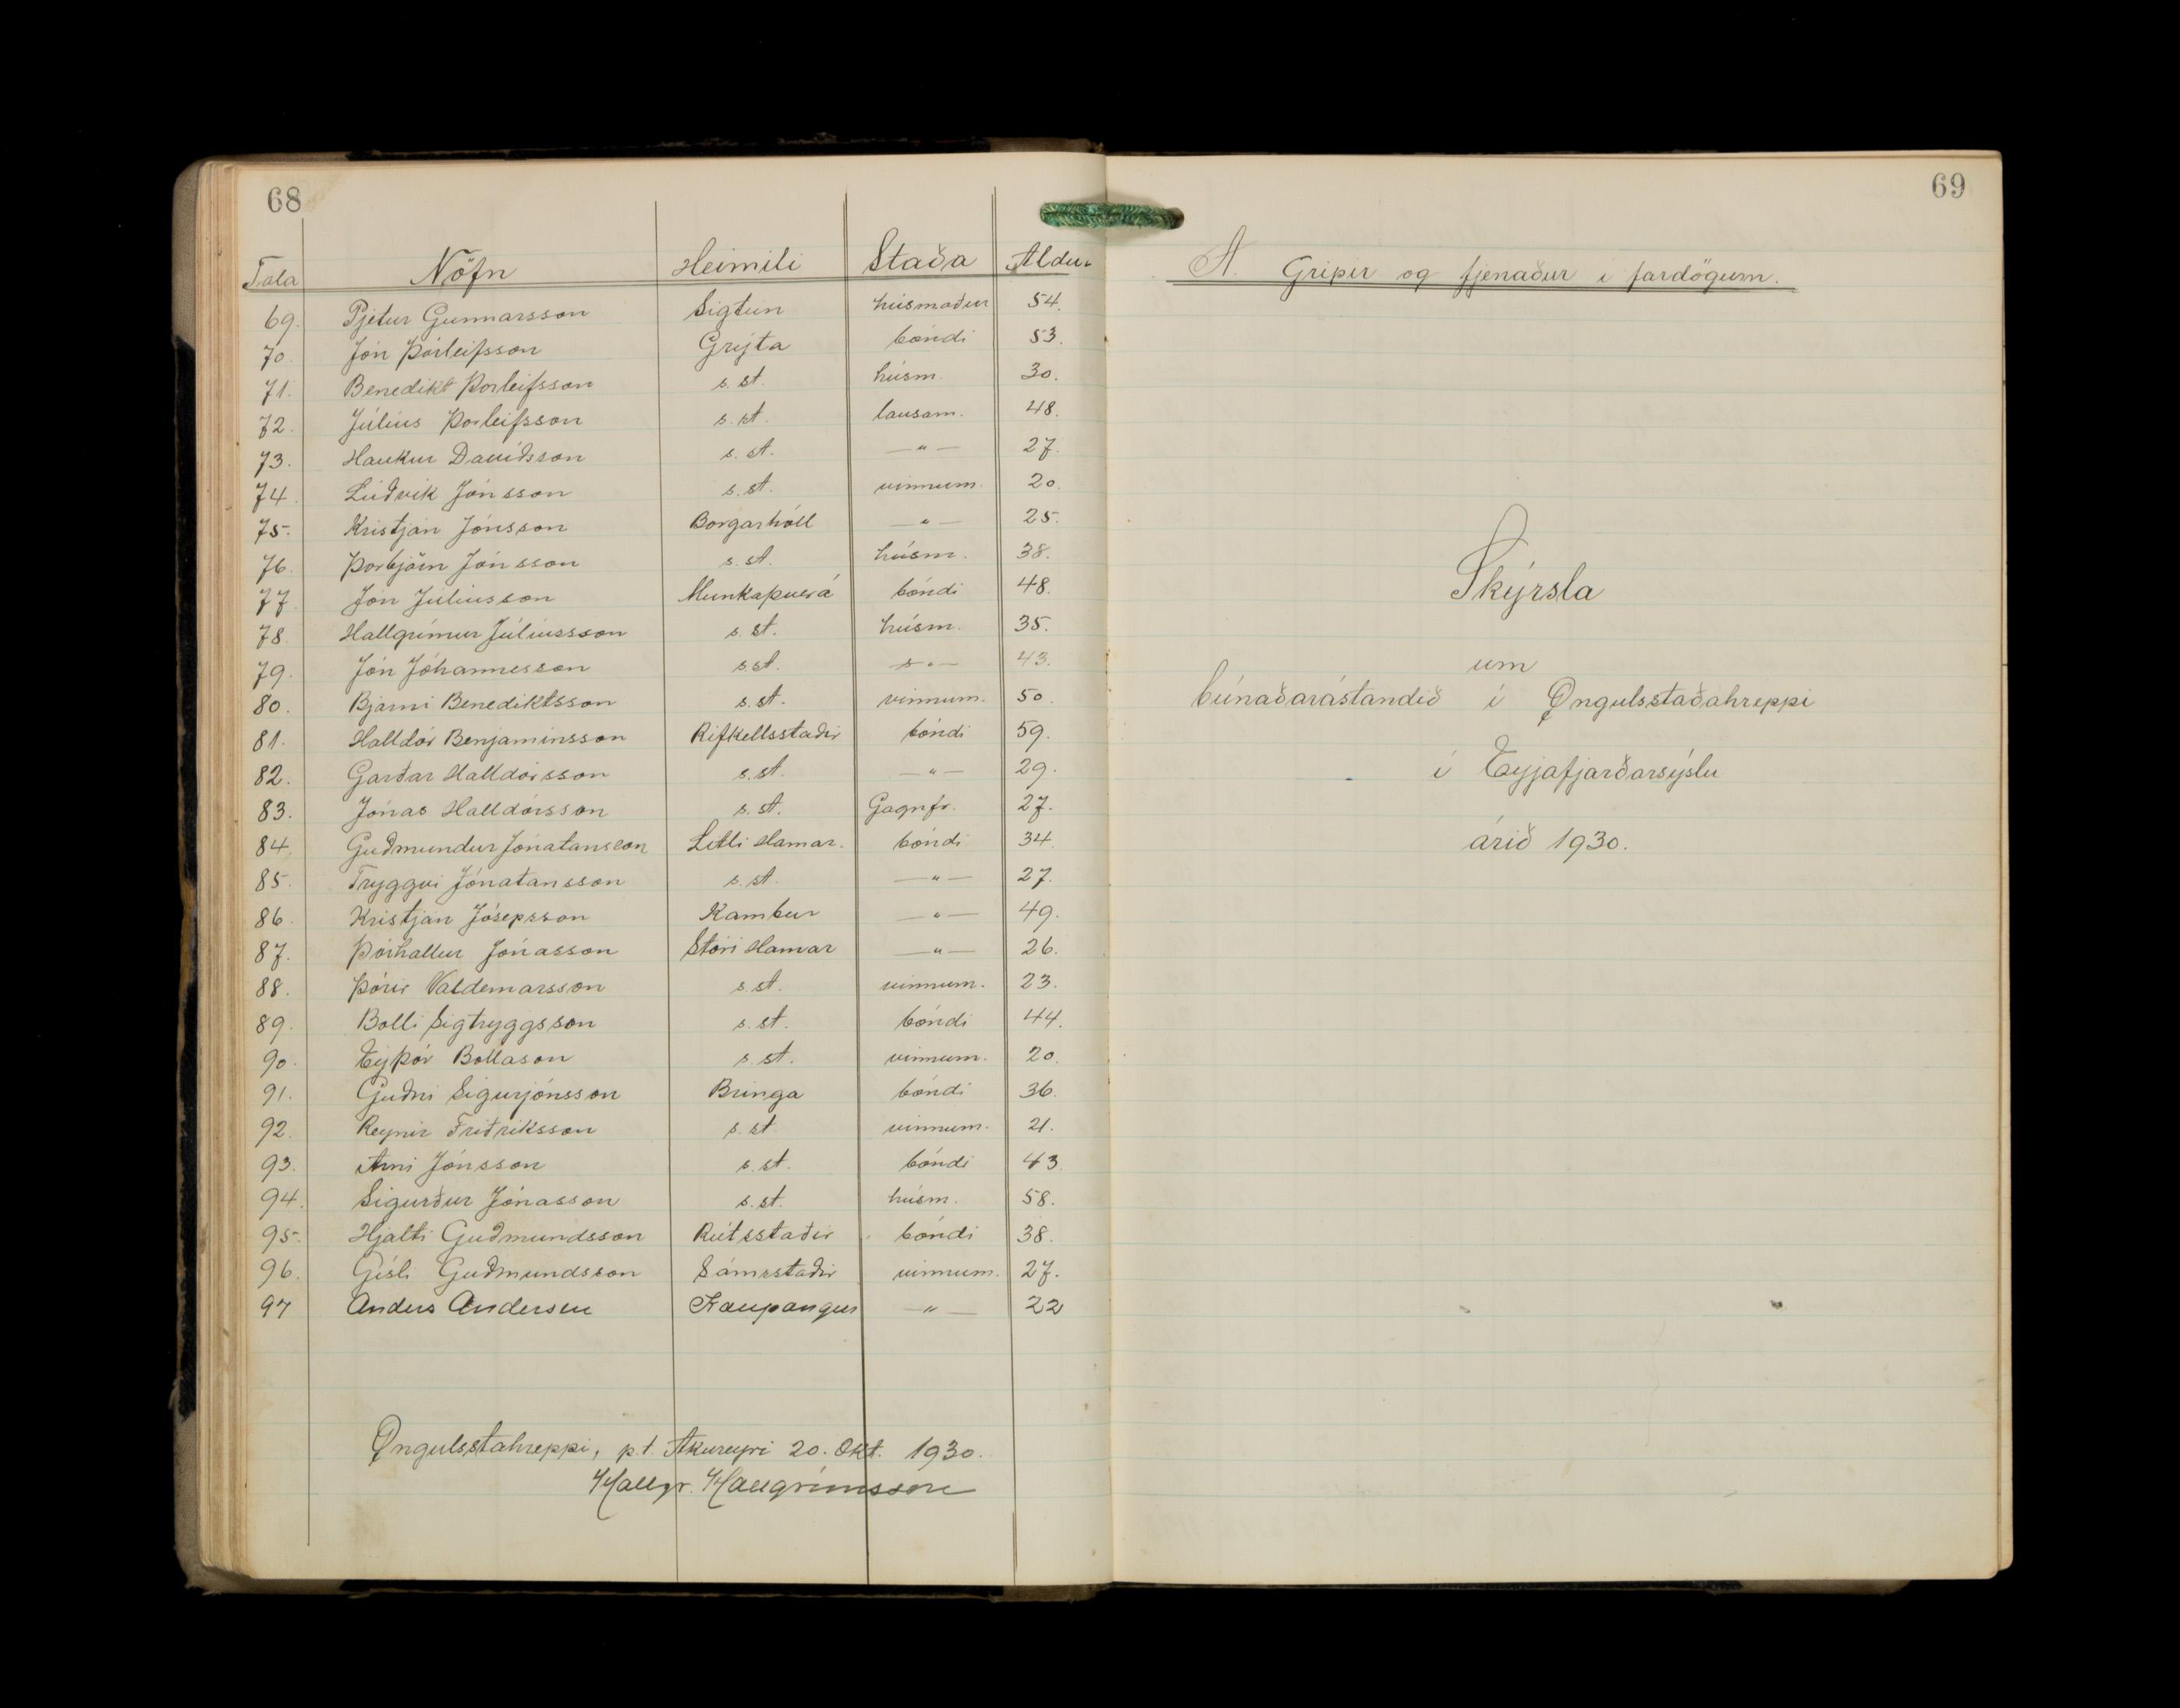 68
Tala Nöfn Heimili Staða Aldur
69. Pjetur Gunnarsson Sigtún húsmaður 54.
70. Jón Þórleifsson Grýta bóndi 53.
71. Benedikt Þorleifsson s. st. húsm. 30.
72. Júlíus Þorleifsson s. st. lausam. 48.
73. Haukur Davíðsson s. st. —"— 27.
74. Lúðvik Jónsson s. st. vinnum. 20.
75. Kristján Jónsson Borgarhóll —"— 25.
76. Þorbjörn Jónsson s. st. húsm. 38.
77. Jón Júlíusson Munkaþverá bóndi 48.
78. Hallgrímur Júlíusson s. st. húsm. 35.
79. Jón Jóhannesson s. st. —"— 43.
80. Bjarni Benediktsson s. st. vinnum. 50.
81. Halldór Benjamínsson Rifkellsstaðir bóndi 59.
82. Garðar Halldórsson s. st. —"— 29.
83. Jónas Halldórsson s. st. Gagnfr. 27.
84. Guðmundur Jónatansson Litli Hamar. bóndi 34.
85. Tryggvi Jónatansson s. st. —"— 27.
86. Kristján Jósepsson Kambur —"— 49.
87. Þórhallur Jónasson Stóri Hamar —"— 26.
88. Þórir Valdemarsson s. st. vinnum. 23.
89. Bolli Sigtryggsson s. st. bóndi 44.
90. Eyþór Bollason s. st. vinnum. 20.
91. Guðni Sigurjónsson Bringa bóndi 36.
92. Reynir Friðriksson s. st. vinnum. 21.
93. Árni Jónsson s. st. bóndi 43.
94. Sigurður Jónasson s. st. húsm. 58.
95. Hjalti Guðmundsson Rútsstaðir bóndi 38.
96. Gísli Guðmundsson Sámsstaðir vinnum. 27.
97 Anders Andersen Kaupangur —"— 22
Öngulsstahreppi, p.t. Akureyri 20. Okt. 1930.
Hallgr. Hallgrímsson
69
A. Gripir og fjenaður i fardögum.
Skýrsla
um
búnaðarástandið í Öngulsstaðahreppi
í Eyjafjarðarsýslu
árið 1930.